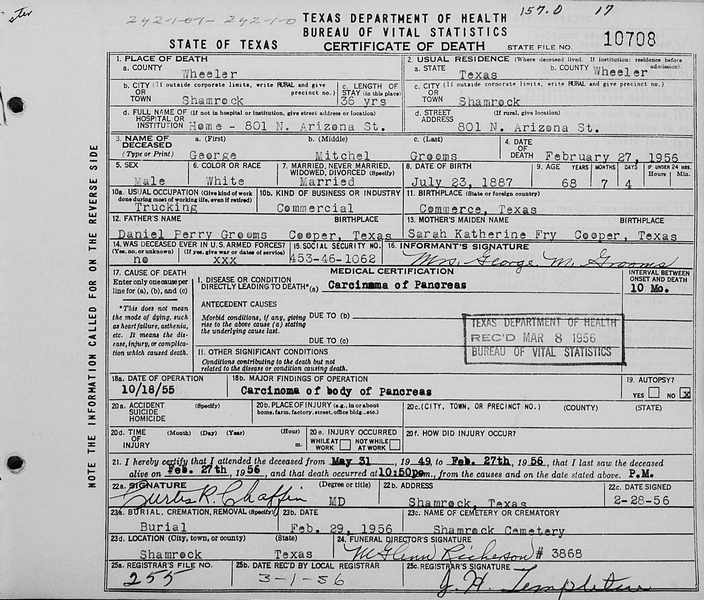 242-1-07- 242-1-0
TEXAS DEPARTMENT OF HEALTH
157.0
17
BUREAU OF VITAL STATISTICS
STATE OF TEXAS
CERTIFICATE OF DEATH
STATE FILE NO.
10708
1. PLACE OF DEATH
a. COUNTY
Wheeler
2. USUAL RESIDENCE (Where deceased lived. If institution: residence before admission).
a. STATE
Texas
b. COUNTY
Wheeler
b. CITY (If outside corporate limits, write RURAL and give precinct no.)
OR
TOWN
Shamrock
c. LENGTH OF STAY (in this place)
36 yrs
c. CITY (If outside corporate limits, write RURAL and give precinct no.)
OR
TOWN
Shamrock
d. FULL NAME OF HOSPITAL OR INSTITUTION
(If not in hospital or institution, give street address or location)
Home - 801 N. Arizona St.
d. STREET ADDRESS
(If rural, give location)
801 N. Arizona St.
3. NAME OF DECEASED
(Type or Print)
a. (First)
George
b. (Middle)
Mitchel
c. (Last)
Grooms
4. DATE OF DEATH
February 27, 1956
5. SEX
Male
6. COLOR OR RACE
White
7. MARRIED, NEVER MARRIED, WIDOWED, DIVORCED (Specify)
Married
8. DATE OF BIRTH
July 23, 1887
9. AGE
YEARS
68
MONTHS
7
DAYS
4
IF UNDER 24 HRS.
Hours
Min.
10a. USUAL OCCUPATION (Give kind of work done during most of working life, even if retired)
Trucking
10b. KIND OF BUSINESS OR INDUSTRY
Commercial
11. BIRTHPLACE (State or foreign country)
Commerce, Texas
12. FATHER'S NAME
BIRTHPLACE
Daniel Perry Grooms
Cooper, Texas
13. MOTHER'S MAIDEN NAME
BIRTHPLACE
Sarah Katherine Fry
Cooper, Texas
14. WAS DECEASED EVER IN U.S. ARMED FORCES?
(Yes, no, or unknown)
(If yes, give war or dates of service)
no
xxx
15. SOCIAL SECURITY NO.
453-46-1062
16. INFORMANT'S SIGNATURE
Mrs. George M. Grooms
17. CAUSE OF DEATH
Enter only one cause per line for (a), (b), and (c)
*This does not mean the mode of dying, such as heart failure, asthenia, etc. It means the disease, injury, or complication which caused death.
MEDICAL CERTIFICATION
INTERVAL BETWEEN ONSET AND DEATH
I. DISEASE OR CONDITION DIRECTLY LEADING TO DEATH*(a)
Carcinoma of Pancreas
10 Mo.
ANTECEDENT CAUSES
Morbid conditions, if any, giving rise to the above cause (a) stating the underlying cause last.
DUE TO (b)
DUE TO (c)
TEXAS DEPARTMENT OF HEALTH
REC'D MAR 8 1956
BUREAU OF VITAL STATISTICS
II. OTHER SIGNIFICANT CONDITIONS
Conditions contributing to the death but not related to the disease or condition causing death.
18a. DATE OF OPERATION
10/18/55
18b. MAJOR FINDINGS OF OPERATION
Carcinoma of body of Pancreas
19. AUTOPSY?
YES
NO X
20a. ACCIDENT
SUICIDE
HOMICIDE
(Specify)
20b. PLACE OF INJURY (e.g., in or about home, farm, factory, street, office bldg., etc.)
20c. (CITY, TOWN, OR PRECINCT NO.)
(COUNTY)
(STATE)
20d. TIME OF INJURY
(Month) (Day) (Year) (Hour)
m.
20e. INJURY OCCURRED
WHILE AT WORK
NOT WHILE AT WORK
20f. HOW DID INJURY OCCUR?
21. I hereby certify that I attended the deceased from May 31, 1949, to Feb. 27th, 1956, that I last saw the deceased
alive on Feb. 27th, 1956, and that death occurred at 10:50pm m., from the causes and on the date stated above. P.M.
22a. SIGNATURE
(Degree or title)
Curtis R. Chaffin
MD
22b. ADDRESS
Shamrock, Texas
22c. DATE SIGNED
2-28-56
23a. BURIAL, CREMATION, REMOVAL (Specify)
Burial
23b. DATE
Feb. 29, 1956
23c. NAME OF CEMETERY OR CREMATORY
Shamrock Cemetery
23d. LOCATION (City, town, or county)
(State)
Shamrock
Texas
24. FUNERAL DIRECTOR'S SIGNATURE
McGlenn Richerson # 3868
25a. REGISTRAR'S FILE NO.
255
25b. DATE REC'D BY LOCAL REGISTRAR
3-1-56
25c. REGISTRAR'S SIGNATURE
J. H. Templeton
NOTE THE INFORMATION CALLED FOR ON THE REVERSE SIDE